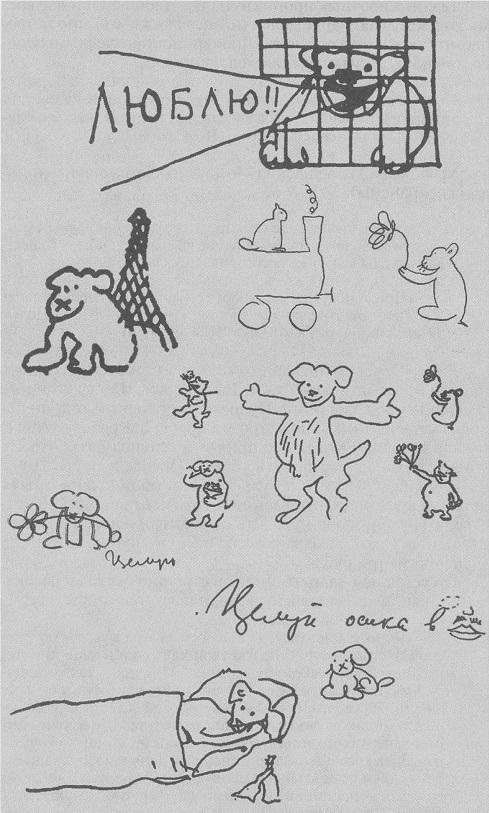 ЛЮБЛЮ!!
Целую
Целуй осика в